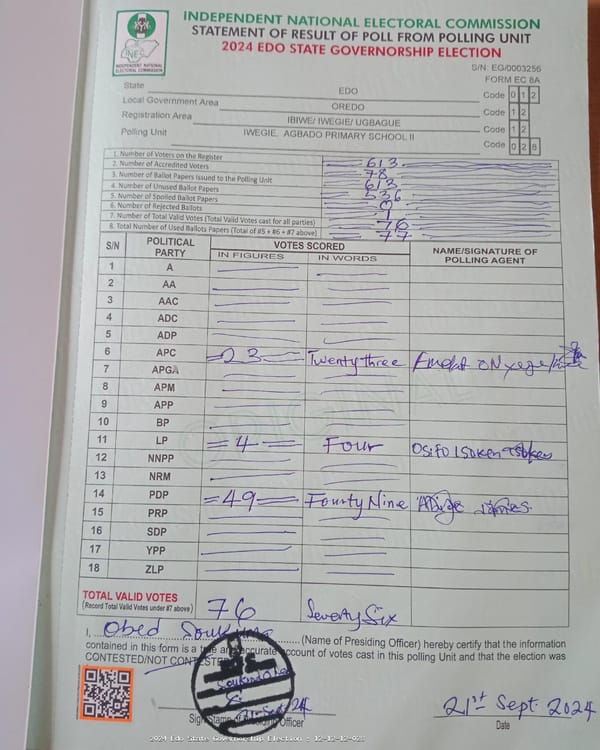 INDEPENDENT NATIONAL ELECTORAL COMMISSION
STATEMENT OF RESULT OF POLL FROM POLLING UNIT
2024 EDO STATE GOVERNORSHIP ELECTION
INEC
INDEPENDENT NATIONAL ELECTORAL COMMISSION
S/N: EG/0003256
FORM EC 8A
State EDO Code 0 1 2
Local Government Area OREDO Code 1 2
Registration Area IBIWE/ IWEGIE/ UGBAGUE Code 1 2
Polling Unit IWEGIE, AGBADO PRIMARY SCHOOL II Code 0 2 8
1. Number of Voters on the Register 613
2. Number of Accredited Voters 78
3. Number of Ballot Papers Issued to the Polling Unit 613
4. Number of Unused Ballot Papers 536
5. Number of Spoiled Ballot Papers 0
6. Number of Rejected Ballots 1
7. Number of Total Valid Votes (Total Valid Votes cast for all parties) 76
8. Total Number of Used Ballots Papers (Total of #5 + #6 + #7 above) 77
S/N POLITICAL PARTY VOTES SCORED NAME/SIGNATURE OF POLLING AGENT
IN FIGURES IN WORDS
1 A
2 AA
3 AAC
4 ADC
5 ADP
6 APC 23 Twenty three
7 APGA
8 APM
9 APP
10 BP
11 LP =4= Four Osifo Isoken
12 NNPP
13 NRM
14 PDP =49= Fourty Nine
15 PRP
16 SDP
17 YPP
18 ZLP
TOTAL VALID VOTES 76 Seventy Six
(Record Total Valid Votes under #7 above)
I, Obed (Name of Presiding Officer) hereby certify that the information
contained in this form is a true and accurate account of votes cast in this polling Unit and that the election was
CONTESTED/NOT CONTESTED
21st Sept. 2024
Officer Date
2024 Edo State Governorship Election : 12-12-12-028